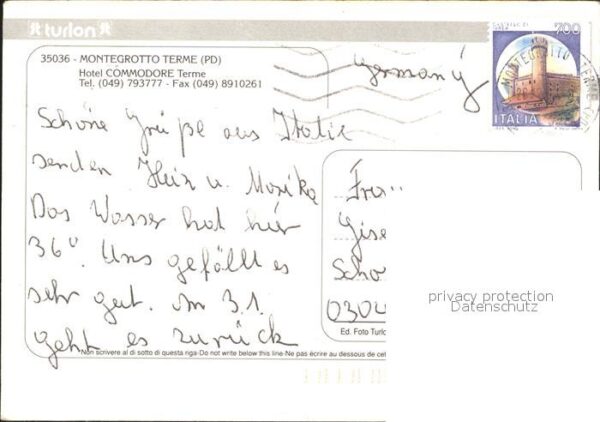 turlon
35036 - MONTEGROTTO TERME (PD)
Hotel COMMODORE Terme
Tel. (049) 793777 - Fax (049) 8910261
Germany
700
ITALIA
MONTEGROTTO TERME
Schöne Grüße aus Italie
senden Heiz u. Monika
Das Wasser hat hier
36° Uns gefällt es
sehr gut. Am 3.1.
geht es zurück
Fra
Gise
Scho
0304
privacy protection
Datenschutz
Ed. Foto Turlo
Non scrivere al di sotto di questa riga-Do not write below this line-Ne pas écrire au dessous de cet